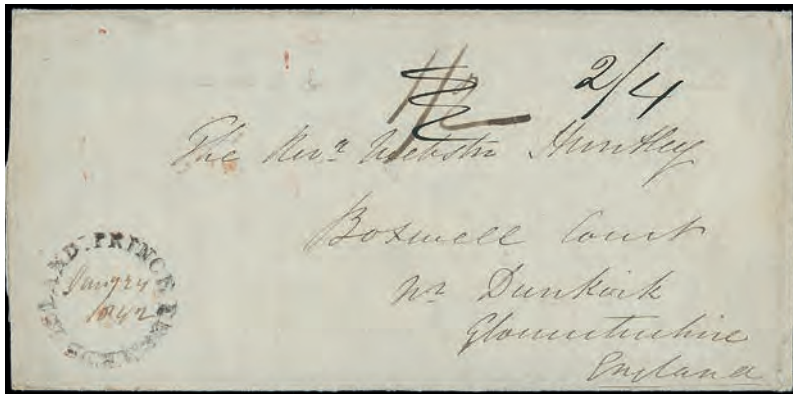 2/4
The Revd Webster Huntley
Boxwell Court
nr Dunkirk
Gloucestershire
England
PRINCE EDWARD ISLAND
Jany 24
1842